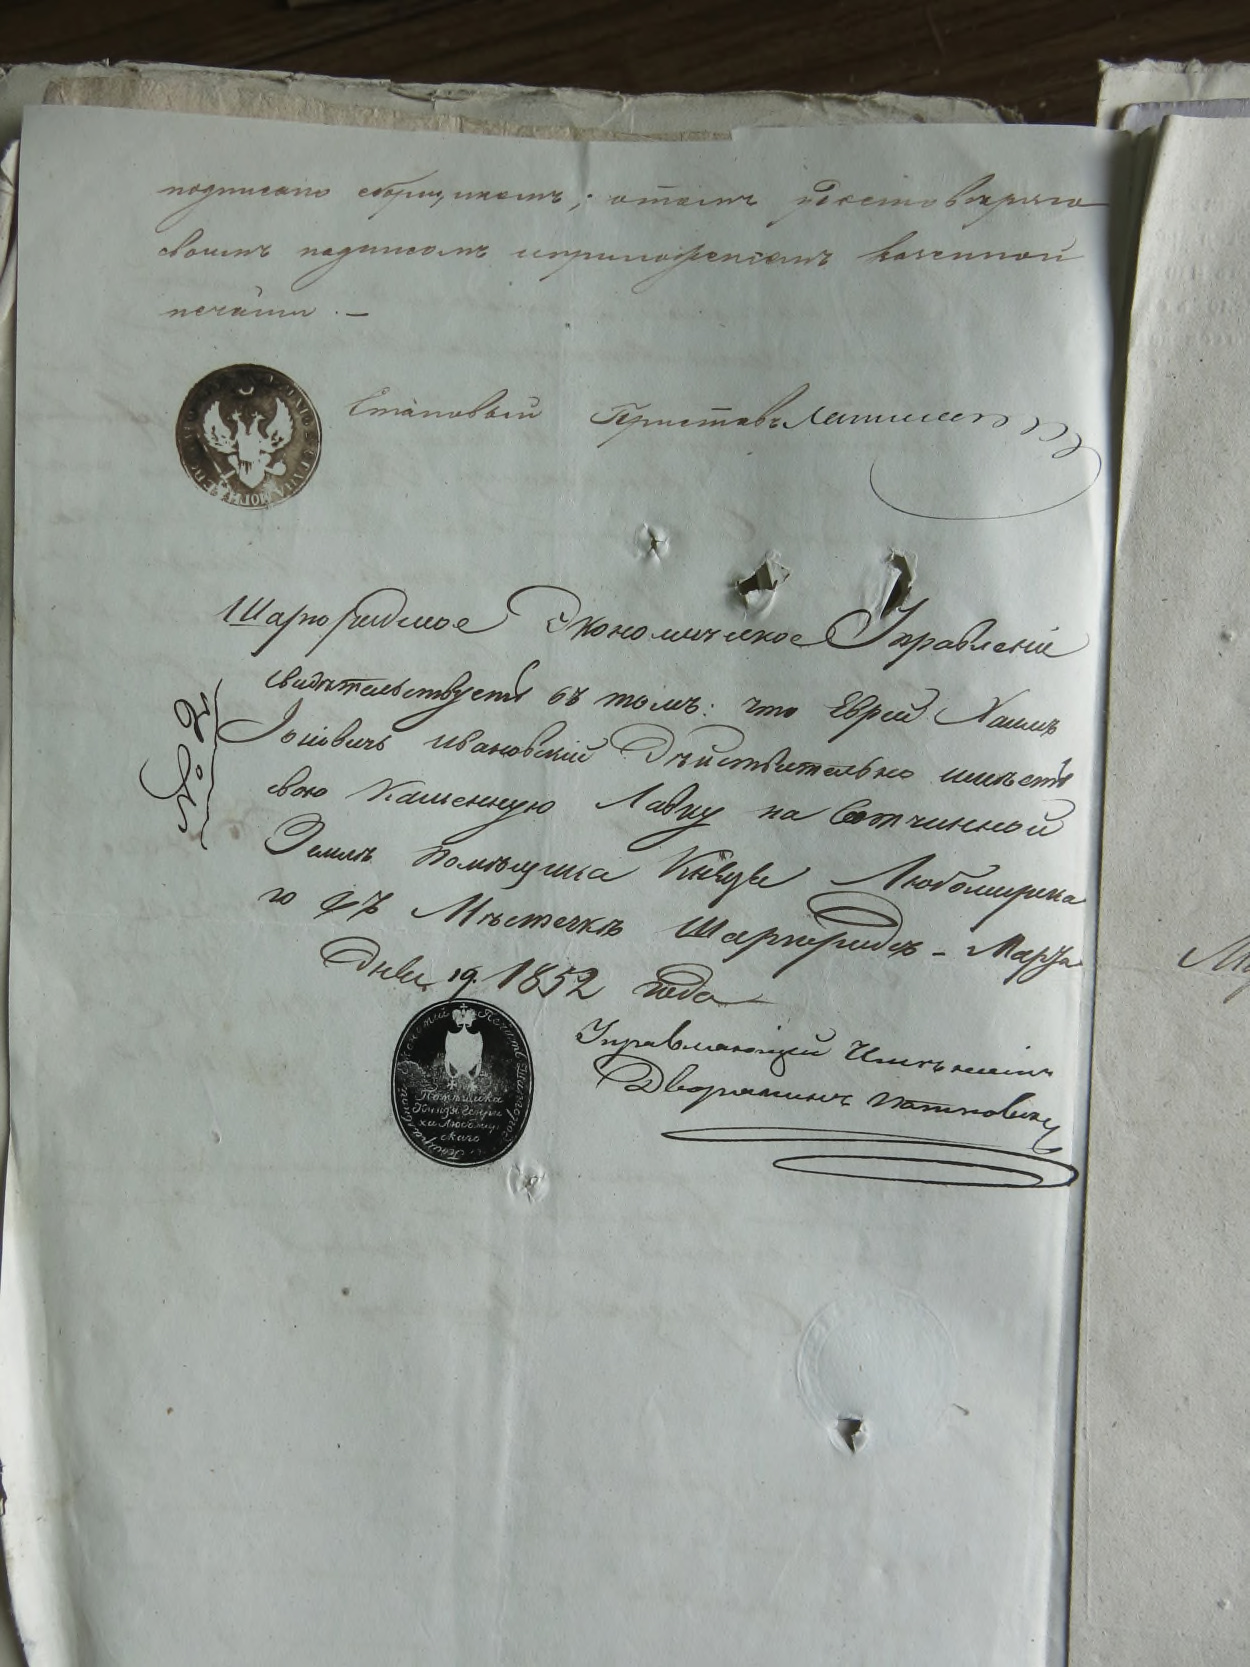 подписано сборщикомъ; отомъ удостоверяю
своимъ подписомъ иприложениемъ казенной
печати. —
Становый Приставъ
Шаргородское Экономическое Управленіе
свидѣтельствуетъ въ томъ: что Еврей Хаимъ
№ 2
Іосіовичъ Ивановскій Дѣйствительно имѣетъ
свою Каменную Лавку на Вотчинной
Землѣ помѣщика Князя Любомирска
го въ Мѣстечкѣ Шаргородѣ – Марта
Дня 19. 1852 года
Управляющій Имѣніемъ
Дворянинъ
Помѣщика
Князя Генри
ха Любомир
скаго